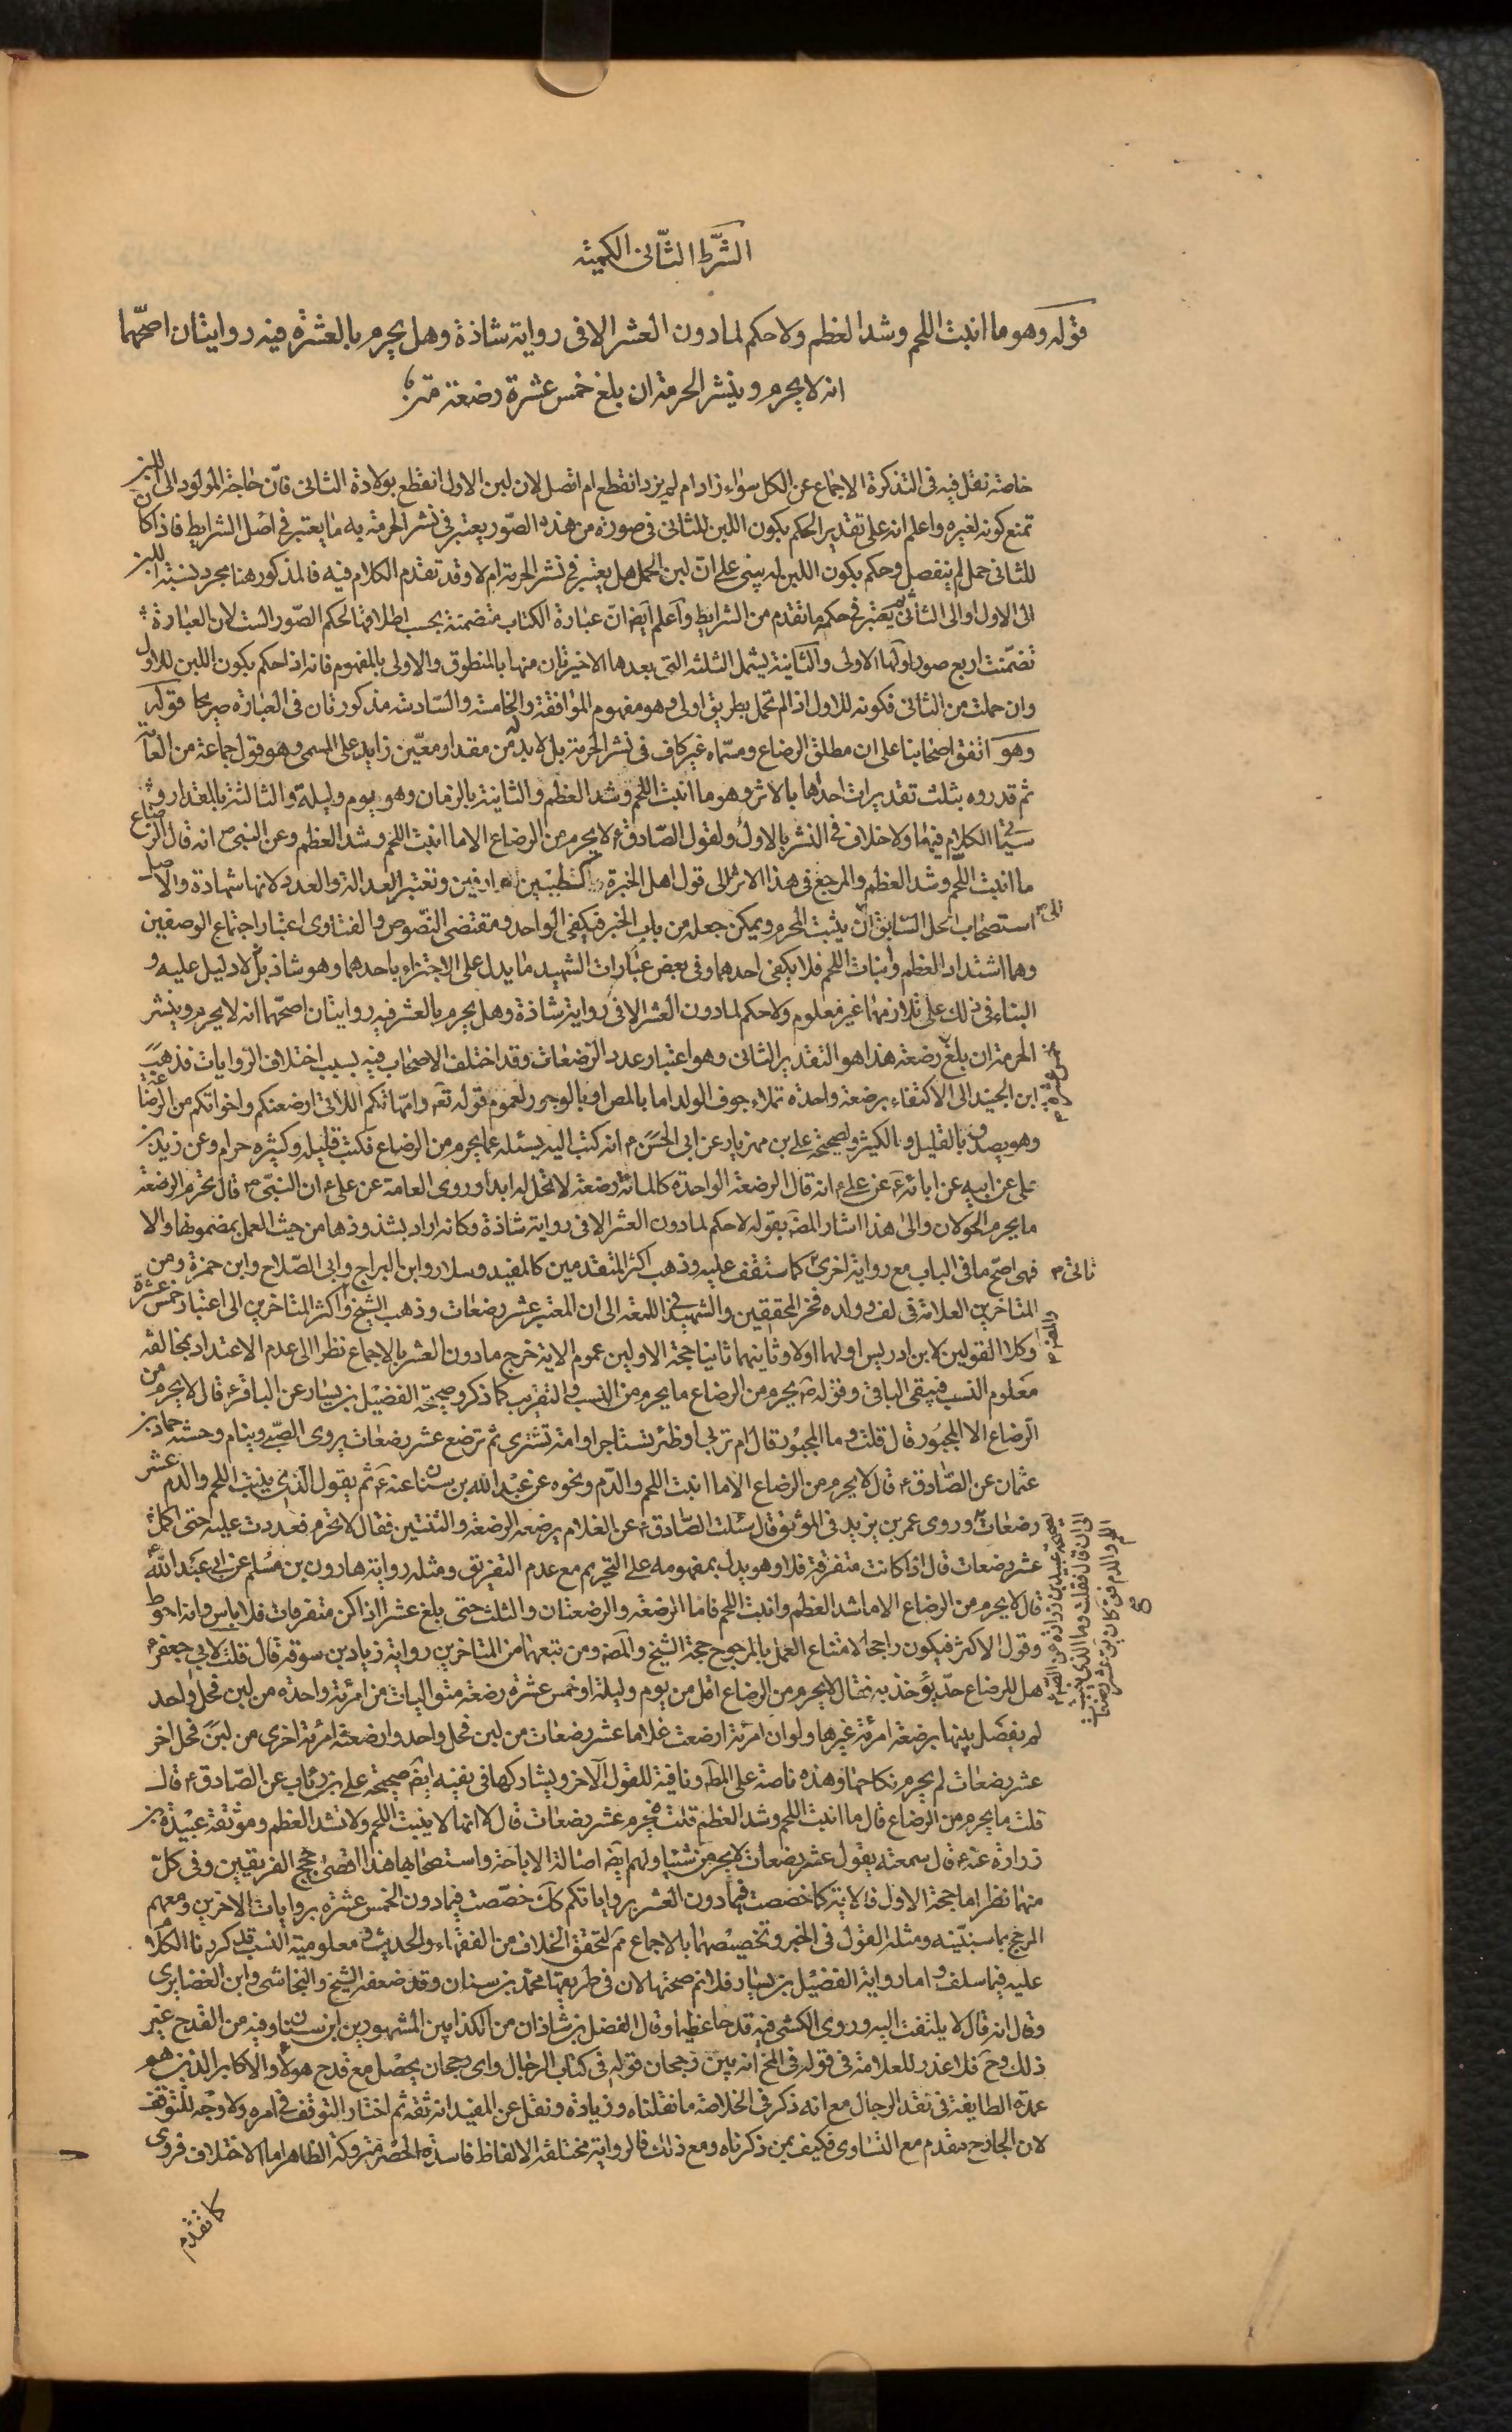 الشرط الثانی الکمیة
قوله وهو ما انبت اللحم وشد العظم ولا حکم لما دون العشر الا فی روایة شاذة وهل یحرم بالعشرة فیه روایتان اصحهما
انه لا یحرم وینشر الحرمة ان بلغ خمس عشرة رضعة
خاصة نقل فیه فی التذکرة الاجماع عن الکل سواء زاد ام لم یزد انقطع ام اتصل لان لبن الاول انقطع بولادة الثانی فان حاجة المولود الی اللبن
تمنع کونه لغیره واعلم انه علی تقدیر الحکم بکون اللبن للثانی فی صورة من هذه الصور یعتبر فی نشر الحرمة به ما یعتبر فی اصل الشرایط فاذا کان
للثانی حمل لم ینفصل وحکم بکون اللبن له یبنی علی ان لبن الحمل هل یعتبر فی نشر الحرمة ام لا وقد تقدم الکلام فیه فالمذکور هنا مجرد نسبة اللبن
الی الاول او الی الثانی ثم یعتبر فی حکمه ما تقدم من الشرایط واعلم ایضا ان عبارة الکتاب متضمنة بحسب اطلاقها لحکم الصور الست لان العبارة
تضمنت اربع صور اولها الاولی والثانیة یشمل الثلثة التی بعدها الاخیرتان منها بالمنطوق والاولی بالمفهوم فانه اذا حکم بکون اللبن للاول
وان حملت من الثانی فکونه للاول اذا لم تحمل بطریق اولی وهو مفهوم الموافقة والخامسة والسادسة مذکورتان فی العبارة صریحا قوله
وهو اتفق اصحابنا علی ان مطلق الرضاع ومسماه غیر کاف فی نشر الحرمة بل لا بد له من مقدار معین زاید علی المسمی وهو قول جماعة من العامة
ثم قدروه بثلث تقدیرات احدها بالاثر وهو ما انبت اللحم وشد العظم والثانیة بالزمان وهو یوم ولیلة والثالثة بالمقدار و
سیاتی الکلام فیهما ولا خلاف فی النشر بالاول ولقول الصادق ع لا یحرم من الرضاع الا ما انبت اللحم وشد العظم وعن النبی ص انه قال الرضاع
ما انبت اللحم وشد العظم والمرجع فی هذا الاثر الی قول اهل الخبرة کطبیبین عارفین وتعتبر العدالة والعدد لانها شهادة والاصل
استصحاب الحل السابق الی ان یثبت المحرم ویمکن جعله من باب الخبر فیکفی الواحد ومقتضی النصوص والفتاوی اعتبار اجتماع الوصفین
وهما اشتداد العظم وانبات اللحم فلا یکفی احدهما وفی بعض عبارات الشهید ما یدل علی الاجتزاء باحدهما وهو شاذ بل لا دلیل علیه و
البناء فی ذلک علی تلازمهما غیر معلوم ولا حکم لما دون العشر الا فی روایة شاذة وهل یحرم بالعشر فیه روایتان اصحهما انه لا یحرم وینشر
الحرمة ان بلغ خمس عشرة رضعة هذا هو التقدیر الثانی وهو اعتبار عدد الرضعات وقد اختلف الاصحاب فیه بسبب اختلاف الروایات فذهب
ابن الجنید الی الاکتفاء برضعة واحدة تملاء جوف الولد اما بالمص او بالوجور لعموم قوله تعم وامهاتکم اللاتی ارضعنکم واخواتکم من الرضاعة
وهو یصدق بالقلیل والکثیر ولصحیحة علی بن مهزیار عن ابی الحسن ع انه کتب الیه یسئله عما یحرم من الرضاع فکتب قلیله وکثیره حرام وعن زید بن
علی عن ابیه عن ابائه ع عن علی ع انه قال الرضعة الواحدة کالمائة رضعة لا تحل له ابدا وروی العامة عن علی ع ان النبی ص قال یحرم الرضعة
ما یحرم الحولان والی هذا اشار المص بقوله لا حکم لما دون العشر الا فی روایة شاذة وکانه اراد بشذوذها من حیث العمل بمضمونها والا
فهی اصح ما فی الباب مع روایة اخری کما ستقف علیه وذهب اکثر المتقدمین کالمفید وسلار وابن البراج وابی الصلاح وابن حمزة ومن
المتاخرین العلامة فی لف وولده فخر المحققین والشهید فی اللمعة الی ان المعتبر عشر رضعات وذهب الشیخ والمص واکثر المتاخرین الی اعتبار خمس عشرة
وکلا القولین لابن ادریس اولهما اولا وثانیهما ثانیا حجة الاولین عموم الایة خرج ما دون العشر بالاجماع نظرا الی عدم الاعتداد بمخالفة
معلوم النسب فیبقی الباقی وقوله ص یحرم من الرضاع ما یحرم من النسب والتقریب کما ذکر وصحیحة الفضیل بن یسار عن الباقر ع قال لا یحرم من
الرضاع الا المجبور قال قلت وما المجبور قال ام تربی او ظئر تستاجر او امة تشتری ثم ترضع عشر رضعات یروی الصبی وینام وحسنة حماد بن
عثمان عن الصادق ع قال لا یحرم من الرضاع الا ما انبت اللحم والدم ونحوه عن عبد الله بن سنان عنه ع ثم یقول الذی ینبت اللحم والدم عشر
رضعات وروی عمر بن یزید فی الموثق قال سئلت الصادق ع عن الغلام یرضع الرضعة والثنتین فقال لا یحرم فعددت علیه حتی اکملت
عشر رضعات قال اذا کانت متفرقة فلا وهو یدل بمفهومه علی التحریم مع عدم التفریق ومثله روایة هارون بن مسلم عن ابی عبد الله ع
قال لا یحرم من الرضاع الا ما شد العظم وانبت اللحم فاما الرضعة والرضعتان والثلث حتی بلغ عشرا اذا کن متفرقات فلا باس وانه احوط
وقول الاکثر فیکون راجحا لامتناع العمل بالمرجوح حجة الشیخ والمص ومن تبعهما من المتاخرین روایة زیاد بن سوقة قال قلت لابی جعفر ع
هل للرضاع حد یؤخذ به فقال لا یحرم من الرضاع اقل من یوم ولیلة او خمس عشرة رضعة متوالیات من امرئة واحدة من لبن فحل واحد
لم یفصل بینها برضعة امرئة غیرها ولو ان امرئة ارضعت غلاما عشر رضعات من لبن فحل واحد وارضعته امرئة اخری من لبن فحل اخر
عشر رضعات لم یحرم نکاحهما وهذه ناصة علی المط ونافیة للقول الاخر ویشارکها فی نفیه ایض صحیحة علی بن رئاب عن الصادق ع قال
قلت ما یحرم من الرضاع قال ما انبت اللحم وشد العظم قلت فیحرم عشر رضعات قال لا انها لا ینبت اللحم ولا تشد العظم وموثقة عبید بن
زرارة عنه ع قال سمعته یقول عشر رضعات لا یحرمن شیئا ولهم ایض اصالة الاباحة واستصحابها هذا اقصی حجج الفریقین وفی کل
منهما نظر اما حجة الاول فالایة کما خصصت فیما دون العشر بروایاتکم کک خصصت فیما دون الخمس عشرة بروایات الاخرین ومعهم
المرجح بما سنبینه ومثله القول فی الخبر وتخصیصهما بالاجماع مم لتحقق الخلاف من الفقهاء والحدیث ومعلومیة النسب قد کررنا الکلام
علیه فیما سلف واما روایة الفضیل بن یسار فلا نم صحتها لان فی طریقها محمد بن سنان وقد ضعفه الشیخ والنجاشی وابن الغضایری
وقال انه قال لا یلتفت الیه وروی الکشی فیه قدحا عظیما وقال الفضل بن شاذان من الکذابین المشهورین ابن سنان وفیه من القدح غیر
ذلک وح فلا عذر للعلامة فی قوله فی المخ انه بین رجحان قوله فی کتاب الرجال وای رجحان یحصل مع قدح هولاء والاکابر الذین هم
عمدة الطایفة فی نقد الرجال مع انه ذکر فی الخلاصة ما نقلناه وزیادة ونقل عن المفید انه ثقة ثم اختار التوقف فی امره ولا وجه للتوقف
لان الجارح مقدم مع التساوی فکیف بمن ذکرناه ومع ذلک فالروایة مختلفة الالفاظ فاسدة الحصر متروکة الظاهر اما الاختلاف فروی
کما تقدم